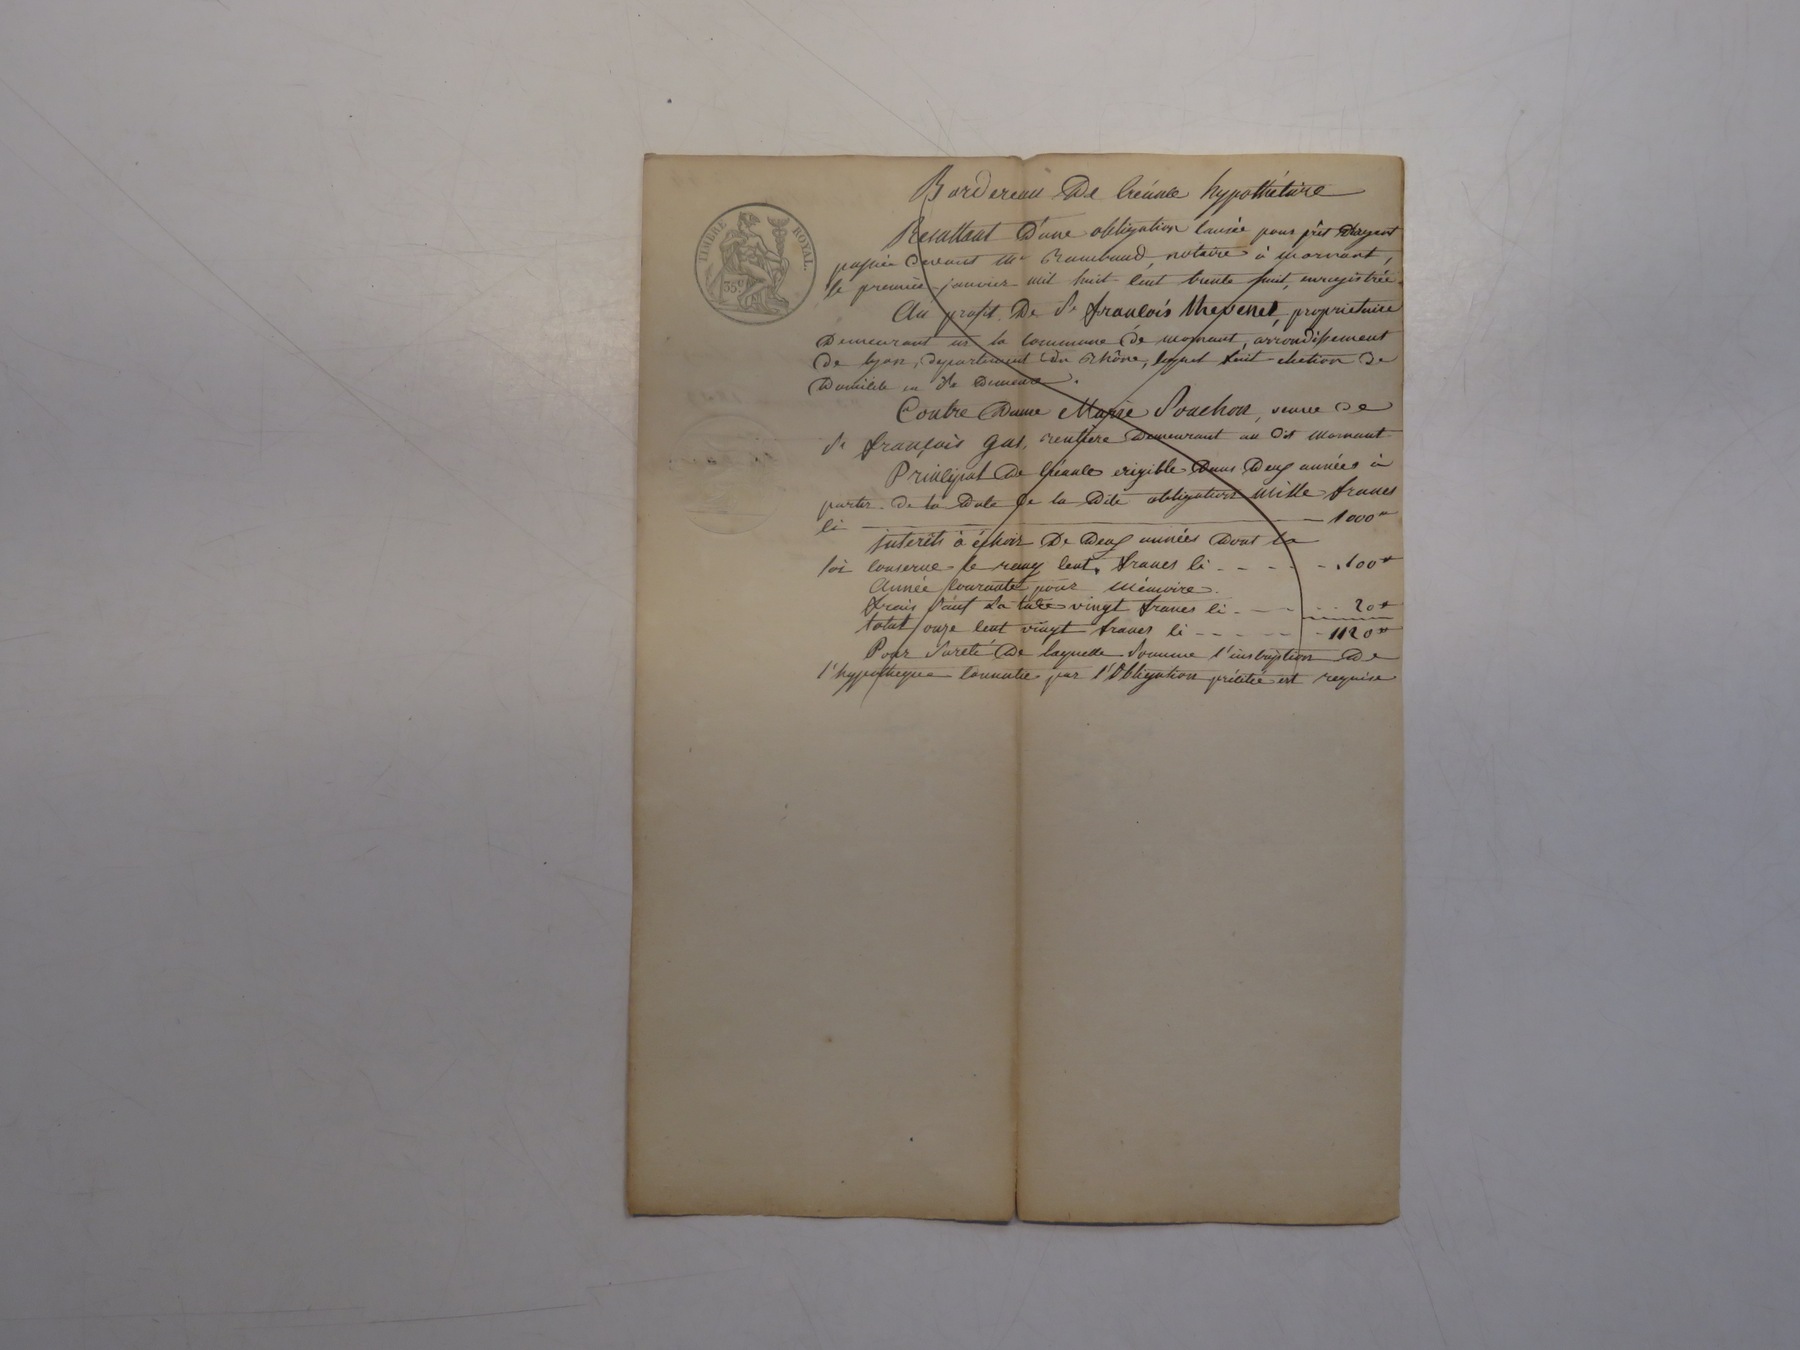 Bordereau De Créance hypothécaire
TIMBRE ROYAL.
35c
Resultant D'une obligation causée pour prêt D'argent
passée devant Me Rambaud, notaire à mornant,
le premier janvier mil huit cent trente huit, enregistrée.
Au profit De Sr françois thevenet, propriétaire
Demeurant en la commune de mornant, arrondissement
de lyon, département du Rhône, lequel fait election de
Domicile en sa demeure.
Contre Dame Marie Souchon, veuve de
Sr françois gas, rentiere Demeurant au dit mornant
Principal De Créance exigible Dans Deux années à
partir de la Date de la Dite obligation mille francs
ci 1000 "
interêts à échoir De Deux années Dont la
loi conserve le rang cent francs ci - - - - 100 "
Année courante pour Mémoire.
frais sauf à taxe vingt francs ci - - - - 20 "
total onze cent vingt francs ci - - - - 1120 "
Pour Sureté De laquelle Somme l'inscription De
l'hypothèque consentie par l'Obligation précitée est requise